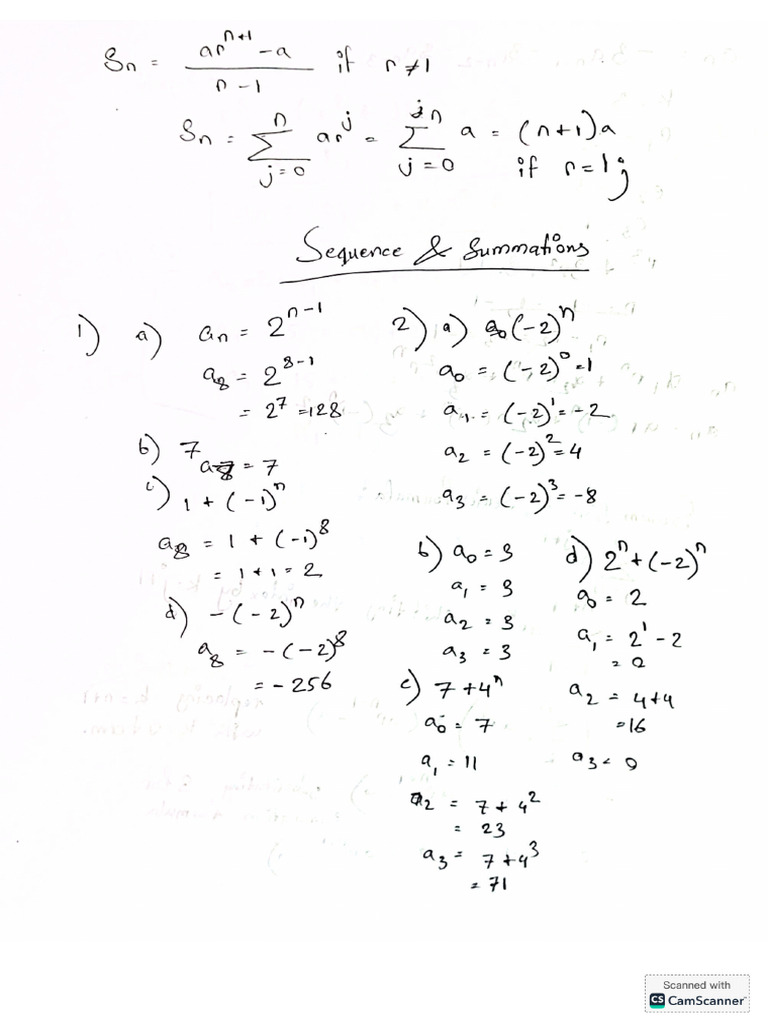 Sn = (ar^(n+1) - a) / (r - 1) if r ≠ 1
Sn = Σ_{j=0}^{n} ar^j = Σ_{j=0}^{n} a = (n+1)a
if r=1;
Sequence & Summations
1) a) an = 2^(n-1)
a8 = 2^(8-1)
= 2^7 = 128
b) 7
a8 = 7
c) 1 + (-1)^n
a8 = 1 + (-1)^8
= 1 + 1 = 2
d) -(-2)^n
a8 = -(-2)^8
= -256
2) a) (-2)^n
a0 = (-2)^0 = 1
a1 = (-2)^1 = -2
a2 = (-2)^2 = 4
a3 = (-2)^3 = -8
b) a0 = 3
a1 = 3
a2 = 3
a3 = 3
c) 7 + 4^n
a0 = 7
a1 = 11
a2 = 7 + 4^2
= 23
a3 = 7 + 4^3
= 71
d) 2^n + (-2)^n
a0 = 2
a1 = 2^1 - 2
= 0
a2 = 4+4
= 16
a3 = 0
Scanned with
CS CamScanner